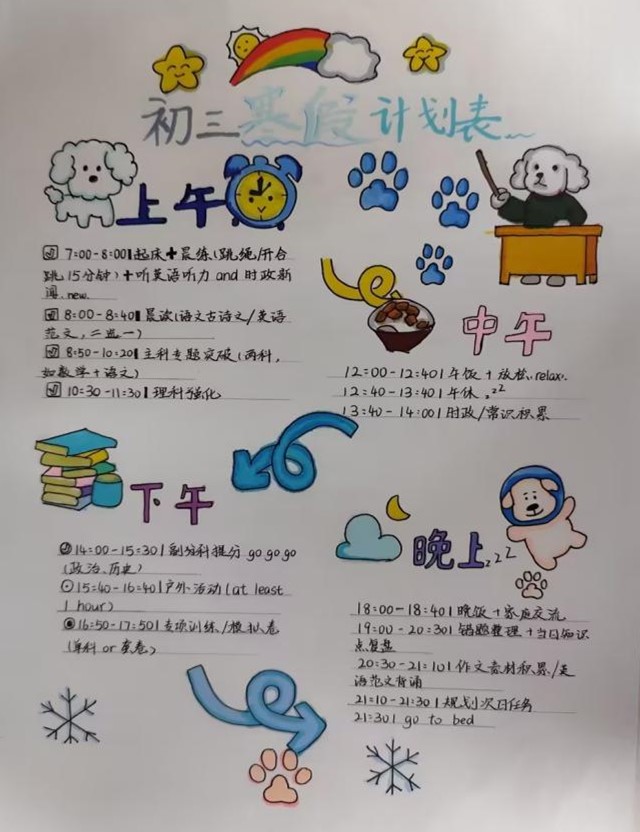 初三寒假计划表
上午
7:00-8:00|起床+晨练(跳绳/开合
跳15分钟)+听英语听力 and 时政新
闻.new.
8:00-8:40|晨读(语文古语文/英语
范文,二选一)
8:50-10:20|主科专题突破(两科,
如数学+语文)
10:30-11:30|理科强化
中午
12:00-12:40|午饭+放松.relax.
12:40-13:40|午休.zz
13:40-14:00|时政/常识积累
下午
14:00-15:30|副科提分 go go go
(政治、历史)
15:40-16:40|户外活动(at least
1 hour)
16:50-17:50|专项训练/模拟卷
(单科or套卷)
晚上zzz
18:00-18:40|晚饭+家庭交流
19:00-20:30|错题整理+当日知识
点复盘
20:30-21:10|作文素材积累/英
语范文背诵
21:10-21:30|规划次日任务
21:30|go to bed